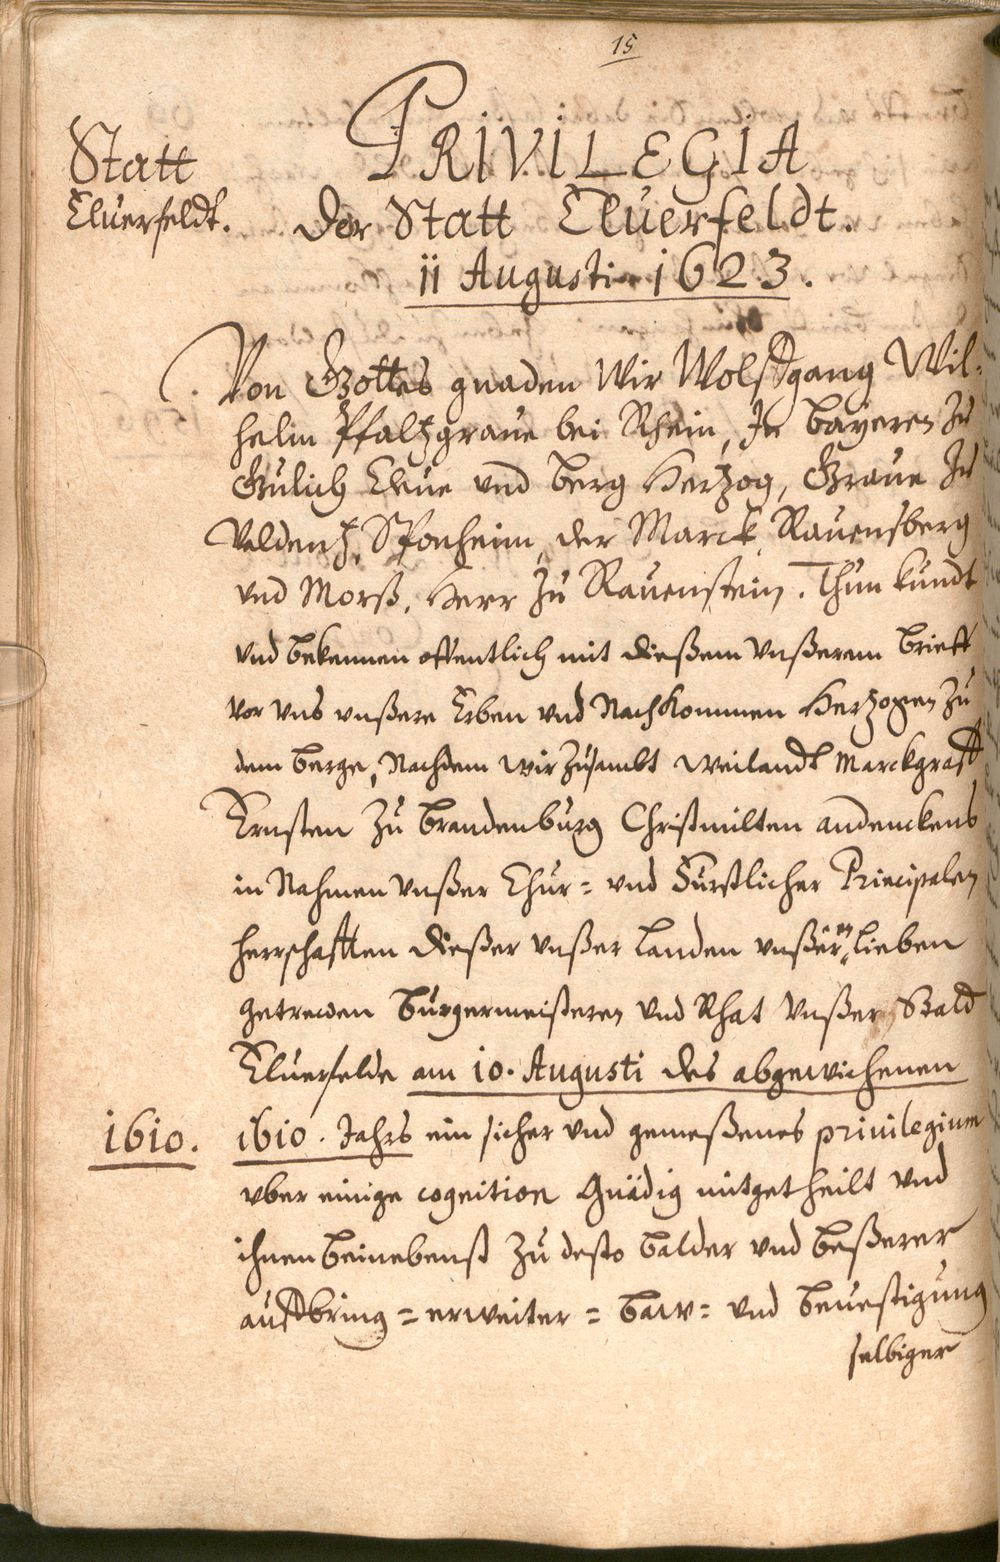 15
Statt
Eluerfeldt.
PRIVILEGIA
Der Statt Eluerfeldt.
11 Augusti 1623.
Von Gottes gnaden Wir Wolffgang Wil-
helm Pfaltzgraue bei Rhein, In Bayeren zu
Gulich Cleue vnd Berg Hertzog, Graue zu
Veldentz, Sponheim, der Marck, Rauensberg
vnd Morß, Herr zu Rauenstein. Thun kundt
vnd bekennen offentlich mit dießem vnßerem brieff
vor vns vnßere Erben vnd Nachkommen Hertzogen zu
dem Berge, Nachdem wir zusambt weilandt Marckgraff
Ernsten zu Brandenburg Christmilten andenckens
in Nahmen vnßer Chur= vnd Furstlicher Principalen
herrschafften dießer vnßer Landen vnßeren lieben
getrewen Burgermeisteren vnd Rhat vnßer Statt
Eluerfelde am 10. Augusti des abgewichenen
1610.
1610. Jahrs ein sicher vnd gemeßenes priuilegium
vber einige cognition gnädig mitgetheilt vnd
ihnen beinebenst zu desto balder vnd beßerer
auffbring= erweiter= baw= vnd beuestigung
selbiger